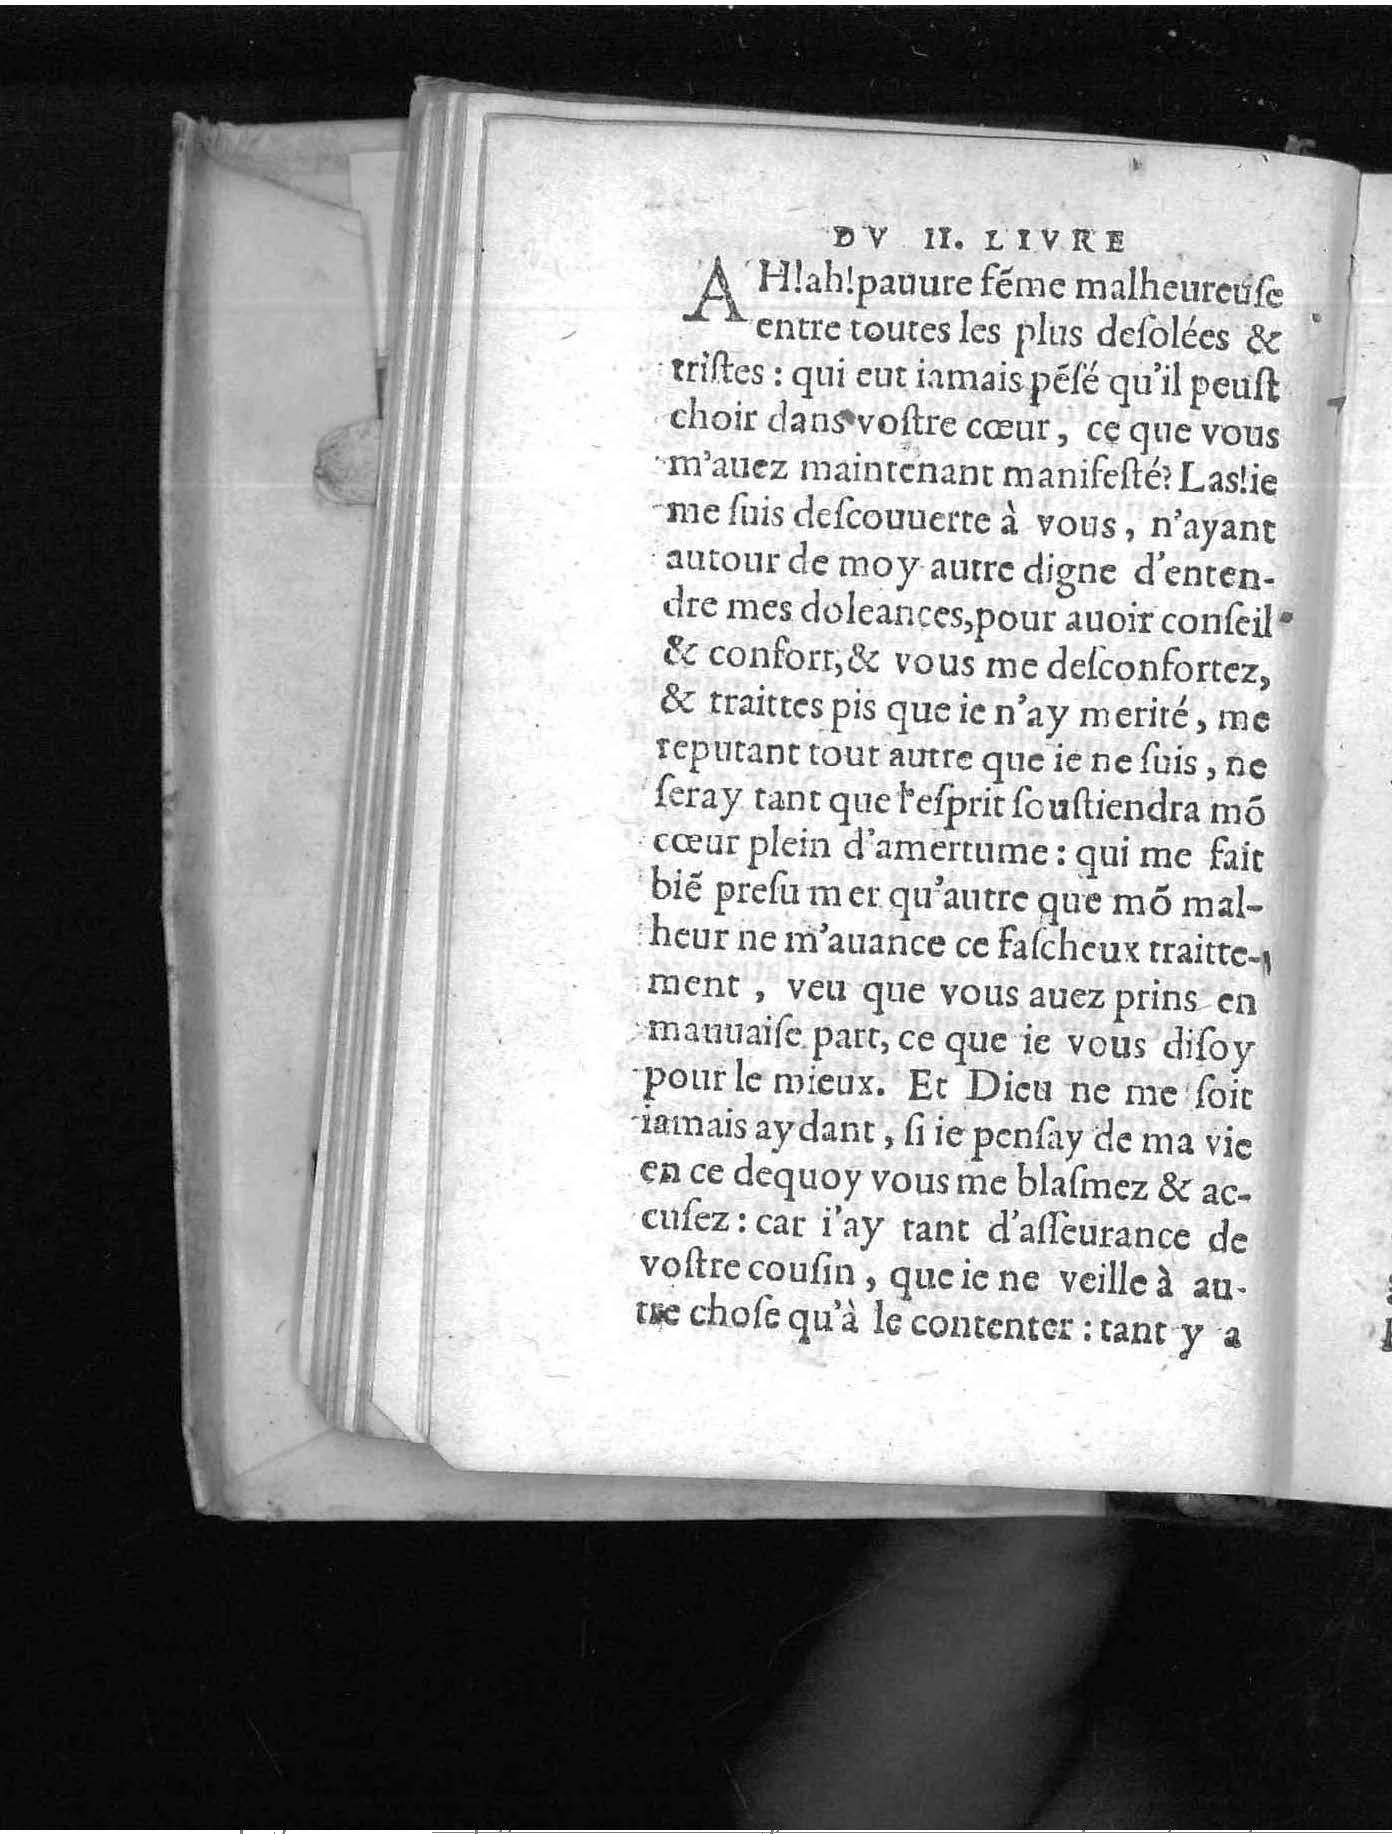 DV II. LIVRE
AH!ah!pauure fẽme malheureuſe
entre toutes les plus deſolées &
triſtes : qui eut iamais pẽſé qu'il peuſt
choir dans voſtre cœur, ce que vous
m'auez maintenant manifeſté? Las!ie
me ſuis deſcouuerte à vous, n'ayant
autour de moy autre digne d'enten-
dre mes doleances,pour auoir conſeil
& confort,& vous me deſconfortez,
& traittes pis que ie n'ay merité, me
reputant tout autre que ie ne ſuis, ne
ſeray tant que l'eſprit ſouſtiendra mõ
cœur plein d'amertume : qui me fait
biẽ preſumer qu'autre que mõ mal-
heur ne m'auance ce faſcheux traitte-
ment, veu que vous auez prins en
mauuaiſe part, ce que ie vous diſoy
pour le mieux. Et Dieu ne me ſoit
iamais aydant, ſi ie penſay de ma vie
en ce dequoy vous me blaſmez & ac-
cuſez : car i'ay tant d'aſſeurance de
voſtre couſin, que ie ne veille à au-
tre choſe qu'à le contenter : tant y a